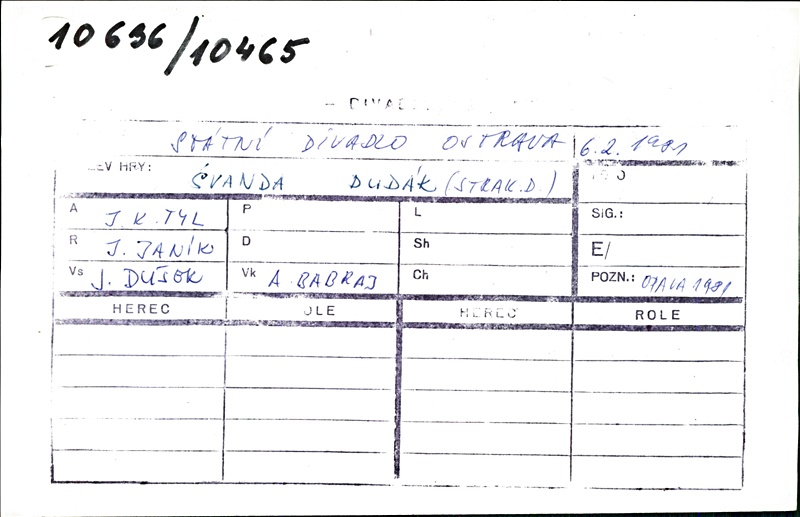 10636/10465
STÁTNÍ DIVADLO OSTRAVA 6.2.1981
EV HRY: ŠVANDA DUDÁK (STRAK.D.)
A J.K.TYL P L SIG.:
R J. JANÍK D Sh E/
Vs J. DUŠEK Vk A. BABRAJ Ch POZN.: OPAVA 1981
HEREC OLE HEREC ROLE